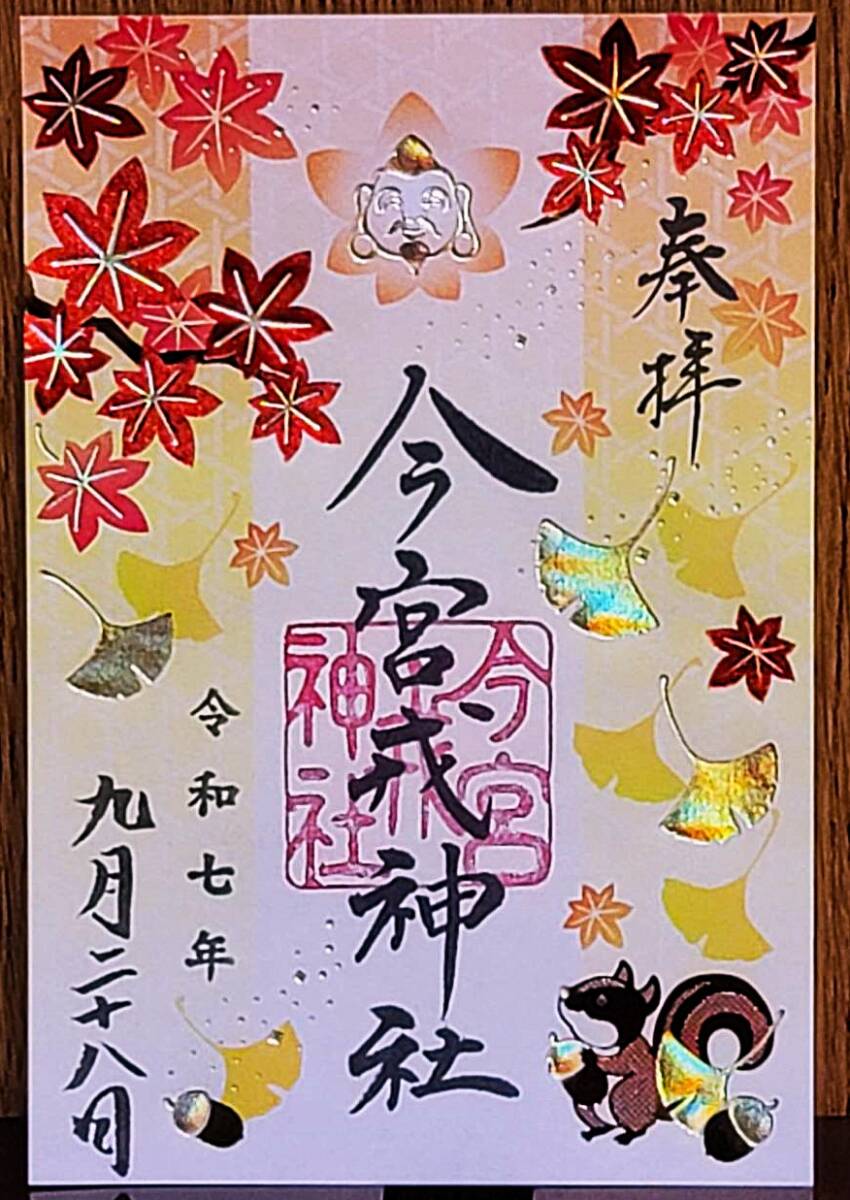 奉拝
今宮戎神社
今宮戎神社
令和七年
九月二十八日